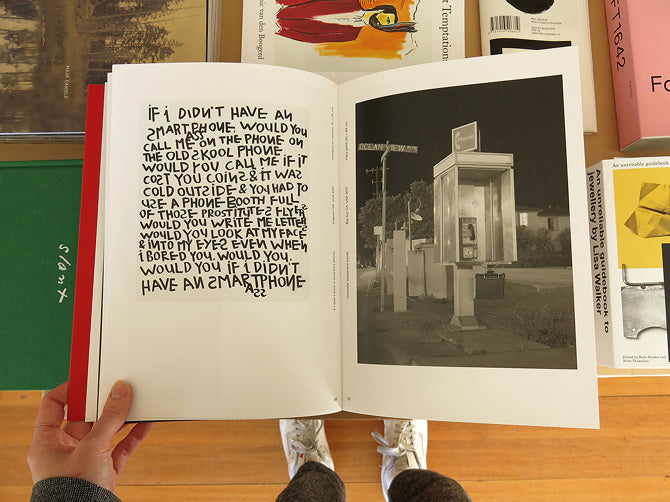 IF I DIDN'T HAVE AN
SMARTASSPHONE. WOULD YOU
CALL ME ON THE PHONE ON
THE OLD SKOOL PHONE
WOULD YOU CALL ME IF IT
COST YOU COINS & IT WAS
COLD OUTSIDE & YOU HAD TO
USE A PHONE BOOTH FULL
OF THOSE PROSTITUTES FLYERS
WOULD YOU WRITE ME LETTERS
WOULD YOU LOOK AT MY FACE
& INTO MY EYES EVEN WHEN
I BORED YOU. WOULD YOU.
WOULD YOU IF I DIDN'T
HAVE AN SMARTPHONE
ASS
OCEAN VIEW
Phone
slanx
MARK DANIELS
van den Boogerd
t Temptations
FT 1642
Fo
An unreliable guidebook to
An unreliable guidebook to
jewellery by Lisa Walker
Edited by